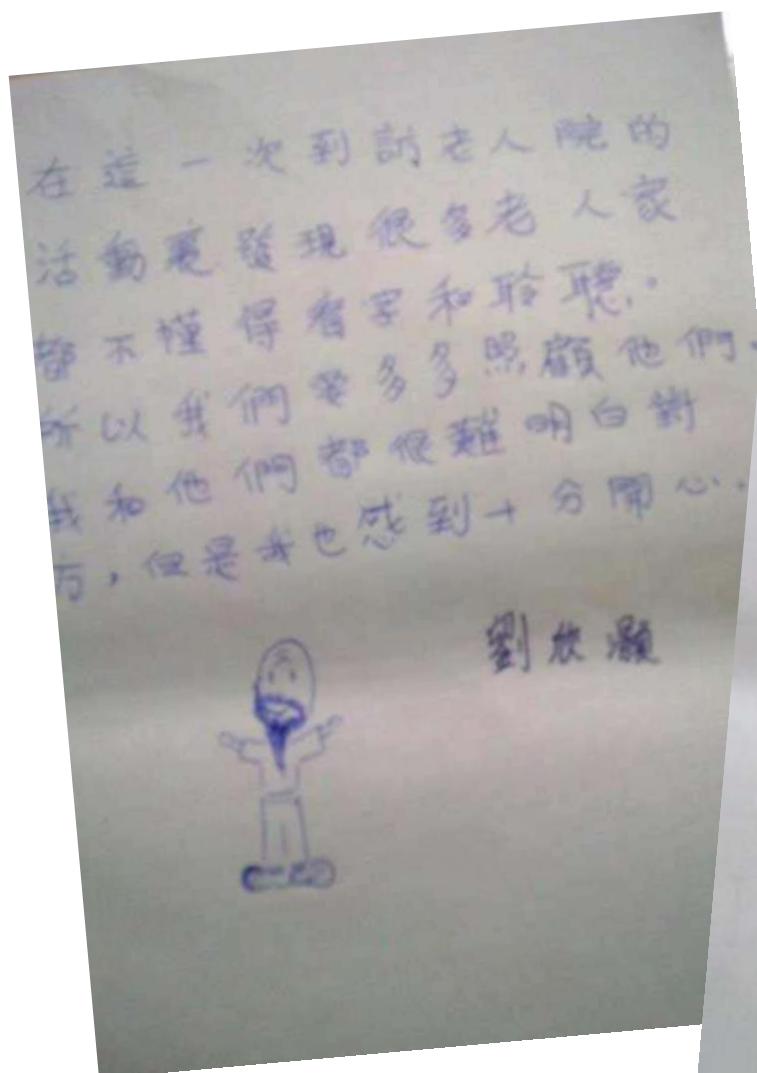 在這一次到訪老人院的
活動裏發現很多老人家
都不懂得看字和聆聽。
所以我們要多多照顧他們。
我和他們都很難明白對
方，但是我也感到十分開心。
劉欣灝